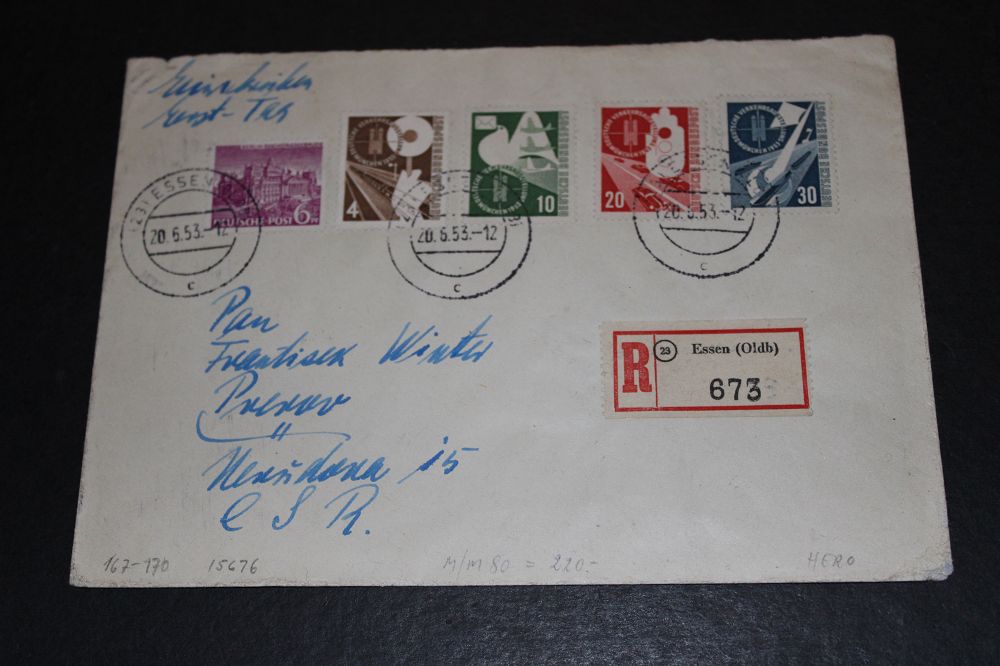 Einschreiben
Erst-Tag
DEUTSCHE POST 6
4
10
20
30
DEUTSCHE BUNDESPOST
(23) ESSEN
20.6.53.-12
c
20.6.53.-12
c
20.6.53.-12
c
Pan
Frantisek Winter
Prerov
Nerudova 15
C S R.
R
23 Essen (Oldb)
673
167-170
15676
M/M 80 = 220.-
HERO